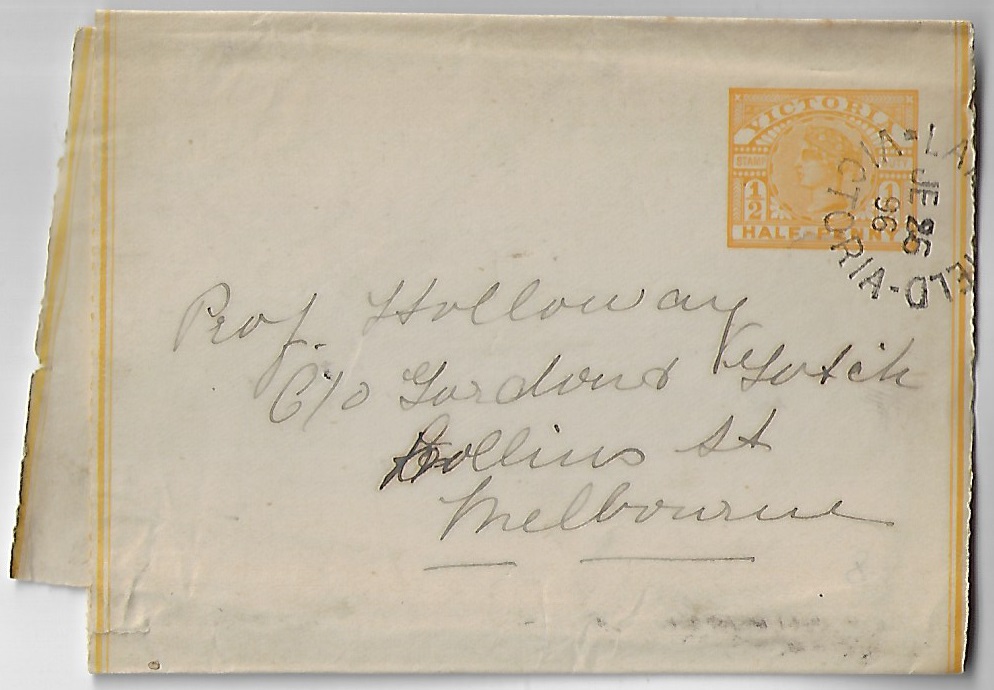 VICTORIA
STAMP
1/2 1/2
HALF-PENNY
JE 26
96
VICTORIA
Prof. Holloway
C/o Gordon & Gotch
Collins St
Melbourne